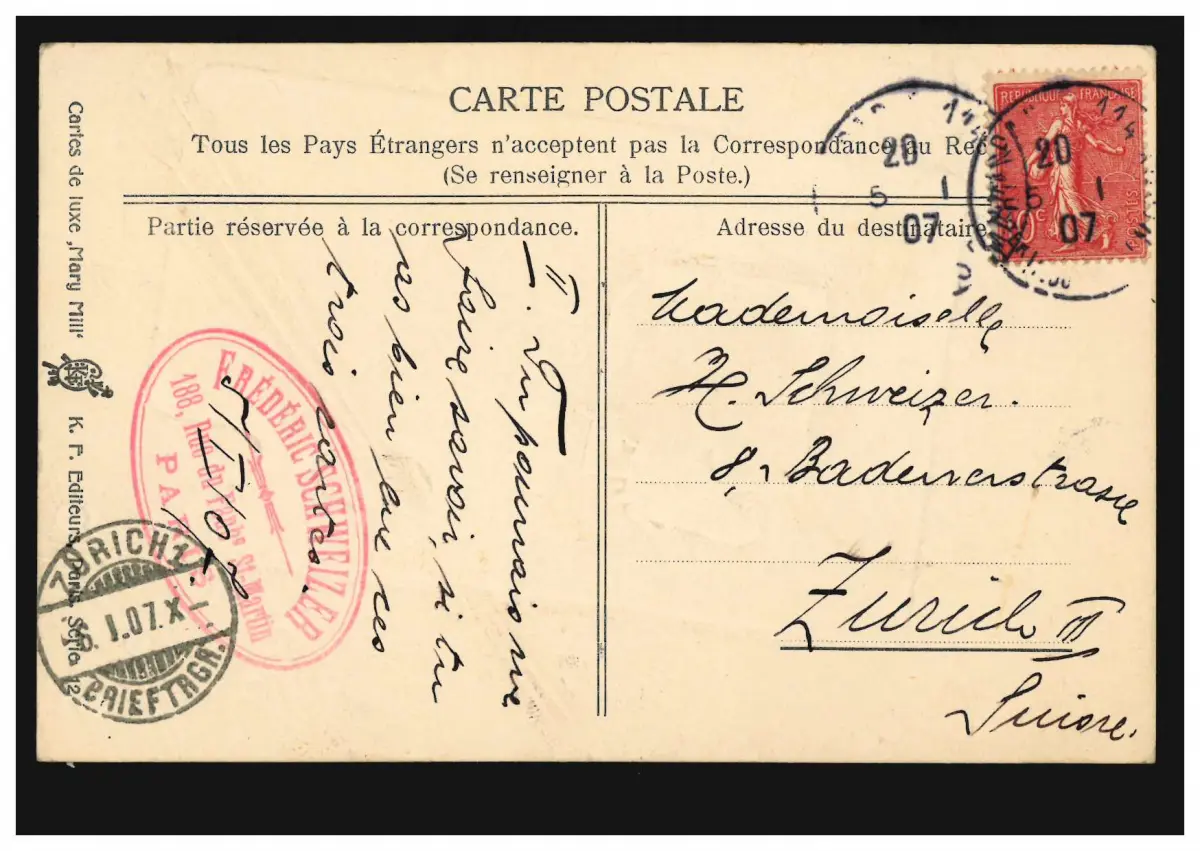 CARTE POSTALE
Tous les Pays Étrangers n'acceptent pas la Correspondance au Rec
(Se renseigner à la Poste.)
Partie réservée à la correspondance.
Adresse du destinataire
II
Tu pourrais me
faire savoir, si tu
as bien lu ces
trois cartes.
5/I/07
FRÉDÉRIC SCHWEIZER
188, Rue du Faubg St. Martin
PARIS
Mademoiselle
H. Schweizer.
8, Badenerstrasse
Zurich III
Suisse.
REPUBLIQUE FRANÇAISE
POSTES
10c
20
5 1
07
20
5 1
07
114
ZÜRICH
6. I. 07. X
BRIEFTRGR.
Cartes de luxe „Mary Mill“
K. F. Editeurs, Paris. Série 12